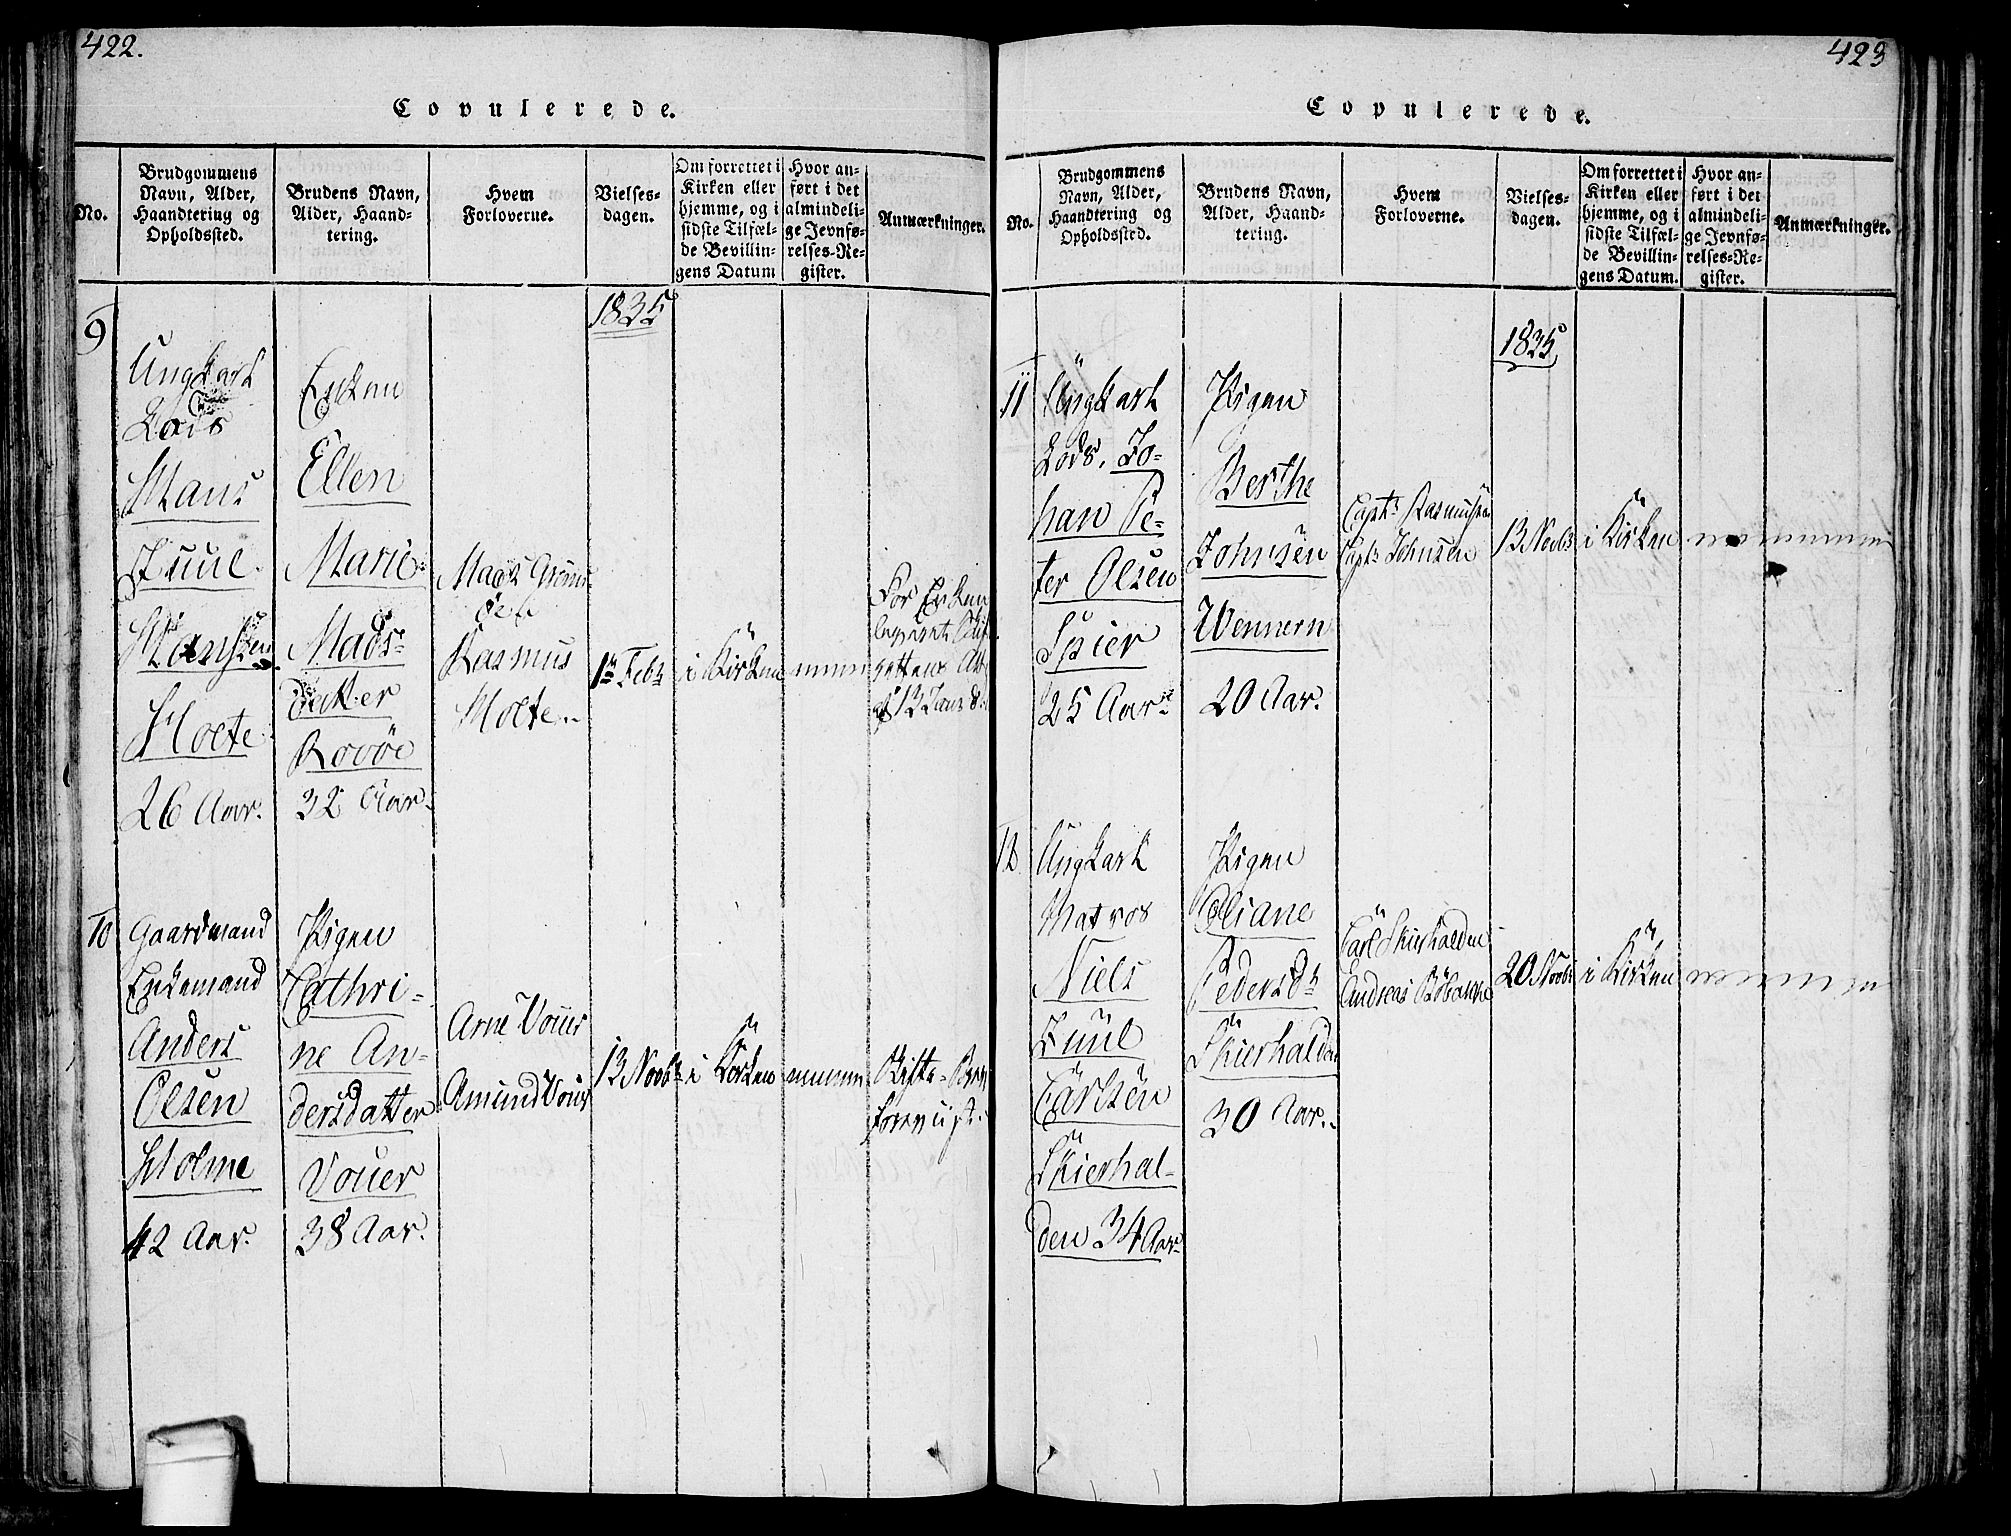 422.
Copulerede.
No.
Brudgommens
Navn, Alder,
Haandtering og
Opholdssted.
Brudens Navn,
Alder, Haand-
tering.
Hvem
Forloverne.
Vielses-
dagen.
Om forrettet i
Kirken eller
hjemme, og i
sidste Tilfæl-
de Bevillin-
gens Datum
Hvor an-
ført i det
almindeli-
ge Jevnfø-
relses-Re-
gister.
Anmærkninger.
1835
9
Ungkarl
Lods
Hans
Juul
Hansen
Holte
26 Aar.
Enken
Ellen
Marie
Mads-
datter
Rovöe
32 Aar.
Mads
Rasmus
Holte.
1ste Febr
i Kirken
For Enken
af 13 Janr
10
Gaardmand
Enkemand
Anders
Olsen
Holme
42 Aar.
Pigen
Cathri-
ne An-
dersdatter
Vouer
38 Aar.
Arne Vouer
Amund Vouer
13 Novbr
i Kirken
423
Copulerede.
No.
Brudgommens
Navn, Alder,
Haandtering og
Opholdssted.
Brudens Navn,
Alder, Haand-
tering.
Hvem
Forloverne.
Vielses-
dagen.
Om forrettet i
Kirken eller
hjemme, og i
sidste Tilfæl-
de Bevillin-
gens Datum.
Hvor an-
ført i det
almindeli-
ge Jevnfø-
relses-Re-
gister.
Anmærkninger.
1835
11
Ungkarl
Lods, Jo-
han Pe-
ter Olsen
Spier
25 Aar
Pigen
Berthe
Johnsen
Wennern
20 Aar.
Captn Rasmussen
Captn Johnsen
13 Novbr
i Kirken
12
Ungkarl
Matros
Niels
Juul
Carlsen
Skierhal-
den 34 Aar
Pigen
Oliane
Pedersdtr
Skierhalden
30 Aar.
Carl Skierhalden
Andreas Röbakke
20 Novbr
i Kirken